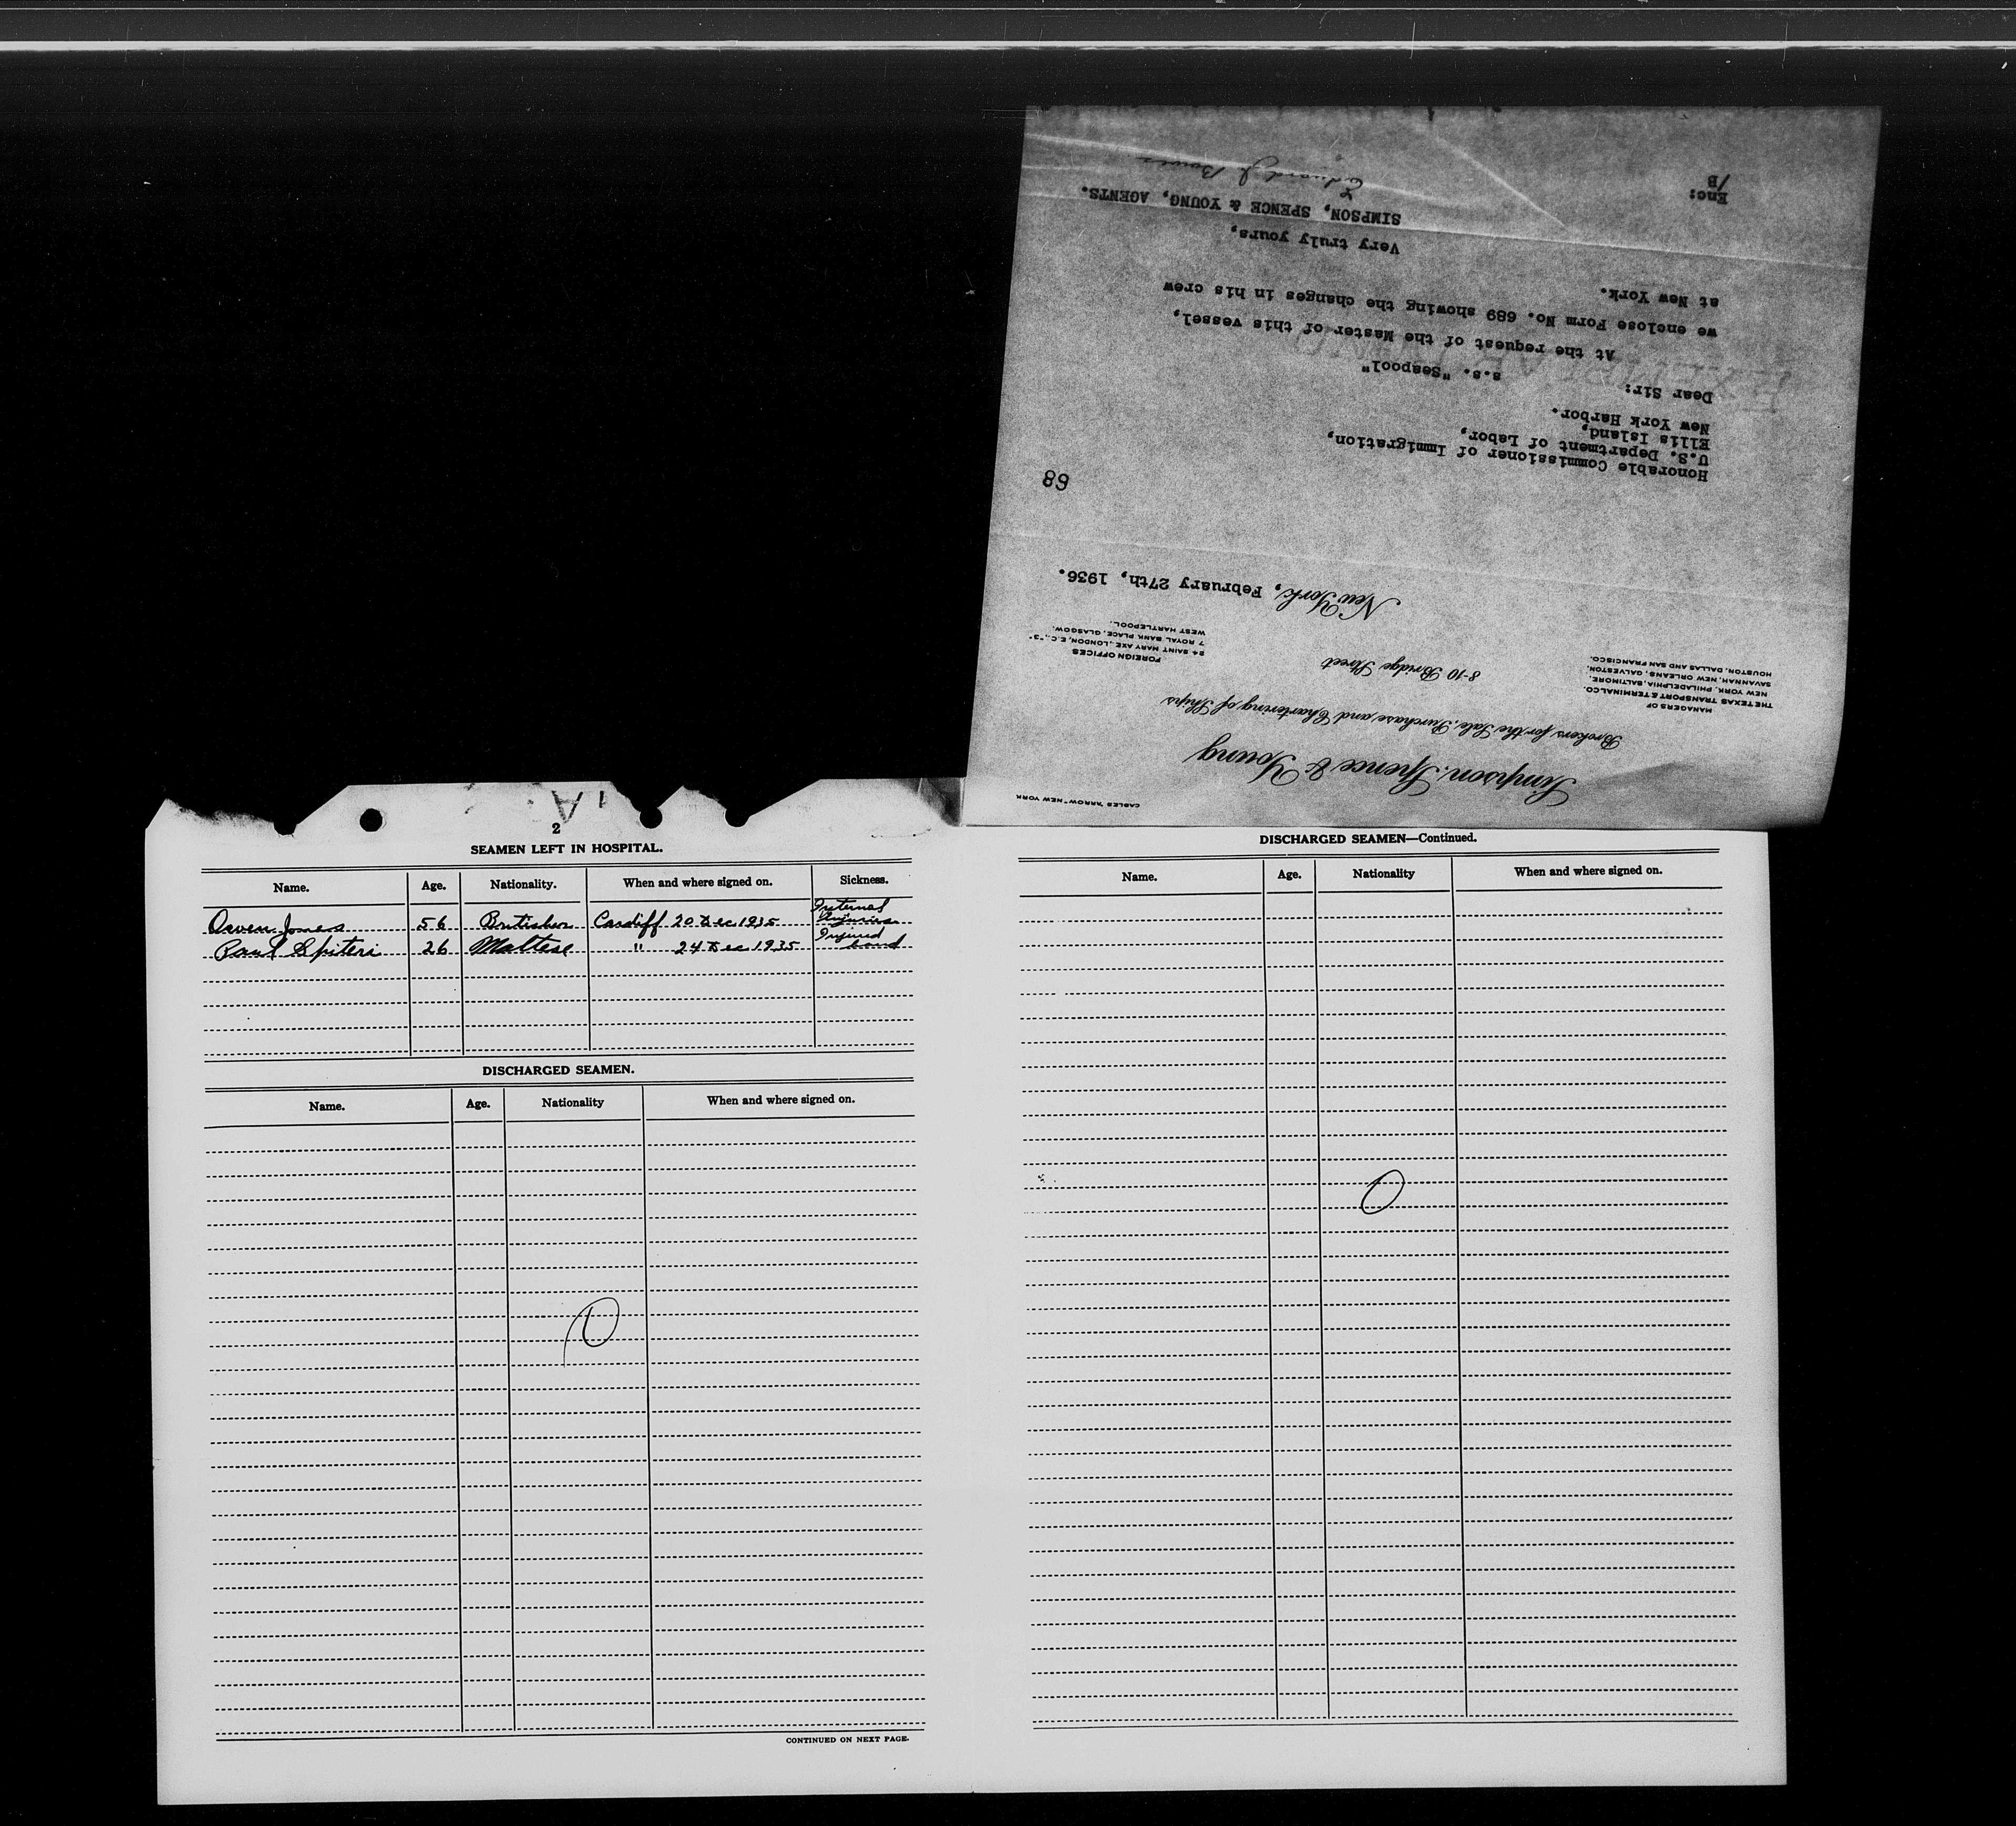 CABLES "ARROW" NEW YORK
Simpson, Spence & Young
Brokers for the Sale, Purchase and Chartering of Ships
8-10 Bridge Street
MANAGERS OF
THE TEXAS TRANSPORT & TERMINAL CO.
NEW YORK, PHILADELPHIA, BALTIMORE,
SAVANNAH, NEW ORLEANS, GALVESTON,
HOUSTON, DALLAS AND SAN FRANCISCO.
FOREIGN OFFICES
24 SAINT MARY AXE, LONDON, E.C., "3"
7 ROYAL BANK PLACE, GLASGOW.
WEST HARTLEPOOL.
New York, February 27th, 1936.
68
Honorable Commissioner of Immigration,
U.S. Department of Labor,
Ellis Island,
New York Harbor.
Dear Sir:
s.s. "Seapool"
At the request of the Master of this vessel,
we enclose Form No. 689 showing the changes in his crew
at New York.
Very truly yours,
SIMPSON, SPENCE & YOUNG, AGENTS.
Edward J.
Enc:
/B
2
SEAMEN LEFT IN HOSPITAL.
Name. Age. Nationality. When and where signed on. Sickness.
Owen Jones 56 Britisher Cardiff 20 Dec 1935 Internal injuries
Paul Spiteri 26 Maltese " 24 Dec 1935 Injured hand
DISCHARGED SEAMEN.
Name. Age. Nationality When and where signed on.
0
CONTINUED ON NEXT PAGE.
DISCHARGED SEAMEN—Continued.
Name. Age. Nationality When and where signed on.
0